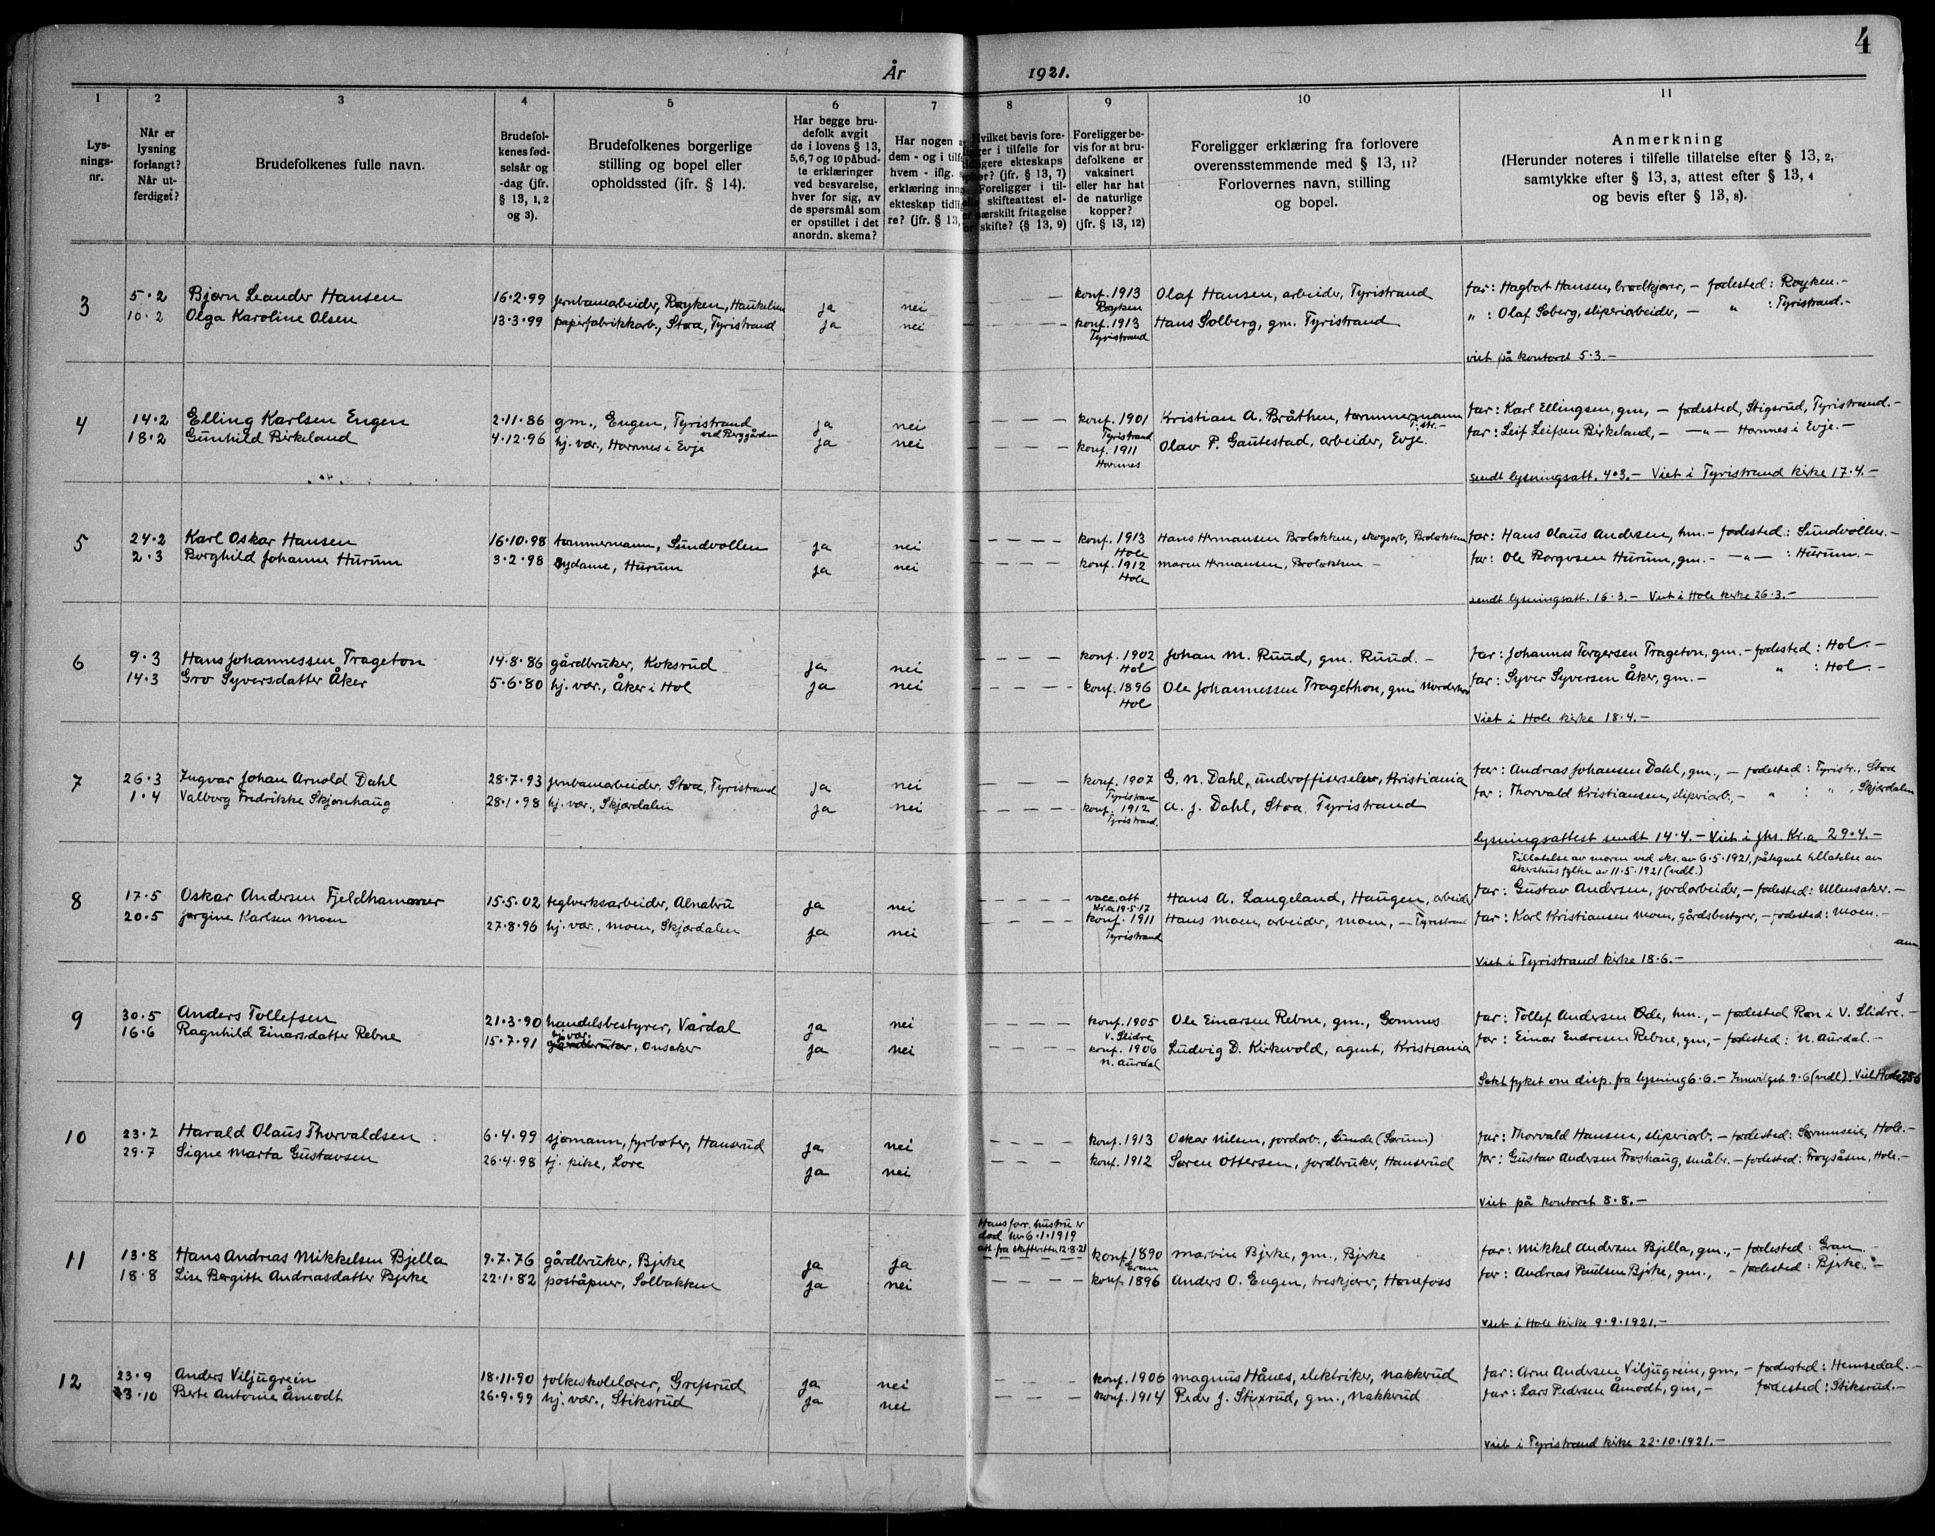 4
År 1921.
1 2 3 4 5 6 7 8 9 10 11
Lysningsnr.
Når er lysning forlangt? Når utferdiget?
Brudefolkenes fulle navn.
Brudefolkenes fødselsår og -dag (jfr. § 13, 1, 2 og 3).
Brudefolkenes borgerlige stilling og bopel eller opholdssted (jfr. § 14).
Har begge brudefolk avgit de i lovens § 13, 5, 6, 7 og 10 påbudte erklæringer ved besvarelse, hver for sig, av de spørsmål som er opstillet i det anordn. skema?
Har nogen a
dem - og i tilf
hvem - iflg.
erklæring inn
ekteskap tidl
re? (jfr. § 13,
Hvilket bevis fore-
ligger i tilfelle for
tidligere ekteskaps
ophør? (jfr. § 13, 7)
Foreligger i til-
elle skifteattest el-
er særskilt fritagelse
for skifte? (§ 13, 9)
Foreligger bevis for at brudefolkene er vaksinert eller har hat de naturlige kopper? (jfr. § 13, 12)
Foreligger erklæring fra forlovere overensstemmende med § 13, 11? Forlovernes navn, stilling og bopel.
Anmerkning
(Herunder noteres i tilfelle tillatelse efter § 13, 2, samtykke efter § 13, 3, attest efter § 13, 4 og bevis efter § 13, 8).
3 5.2 Bjørn Leander Hansen 16.2.99 jernbanearbeider, Røyken, Haukelien ja nei — — — konf. 1913 Røyken Olaf Hansen, arbeider, Tyristrand far: Hagbart Hansen, brødkjører, – fødested: Røyken. –
10.2 Olga Karoline Olsen 13.3.99 papirfabrikkarb., Stoa, Tyristrand ja nei — — — konf. 1913 Tyristrand Hans Solberg, gm. Tyristrand „ : Olaf Soberg, sliperiarbeider, – „ : Tyristrand. –
viet på kontoret 5.3. –
4 14.2 Elling Karlsen Engen 2.11.86 gm., Engen, Tyristrand ja nei — — — konf. 1901 Tyristrand Kristian A. Bråthen, tømmermann T.str. – far: Karl Ellingsen, gm, – fødested, Stigsrud, Tyristrand. –
18.2 Gunhild Birkeland 4.12.96 hj. vær., Hornnes i Evje ved Berggården ja nei — — — konf. 1911 Hornnes Olav P. Gautestad, arbeider, Evje. far: Leif Leifsen Birkeland, – —„— Hornnes i Evje. –
sendt lysningsatt. 4.3. – Viet i Tyristrand kirke 17.4. –
5 24.2 Karl Oskar Hansen 16.10.98 tømmermann, Sundvollen ja nei — — — konf. 1913 Hole Hans Hermansen Braløkken, skogsarb, Braløkken far: Hans Olaus Andersen, hm. – fødested: Sundvollen. –
2.3 Borghild Johanne Hurum 3.2.98 sydame, Hurum ja nei — — — konf. 1912 Hole Maren Hermansen, Braløkken – far: Ole Borgersen Hurum, gm. – —„— : Hurum. –
sendt lysningsatt. 16.3. – Viet i Hole kirke 26.3. –
6 9.3 Hans Johannessen Trageton 14.8.86 gårdbruker, Koksrud ja nei — — — konf. 1902 Hol Johan M. Ruud, gm. Ruud. – far: Johannes Torgersen Trageton, gm. – fødested: Hol. –
14.3 Gro Syversdatter Åker 5.6.80 hj. vær., Åker i Hol ja nei — — — konf. 1896 Hol Ole Johannessen Tragethon, gm far: Syver Syversen Åker, gm. – „ : Hol. –
Viet i Hole kirke 18.4. –
7 26.3 Ingvar Johan Arnold Dahl 28.7.93 jernbanearbeider, Stoa, Tyristrand ja nei — — — konf. 1907 Tyristrand G. N. Dahl, underoffiserselev, Kristiania far: Andreas Johansen Dahl, gm., – fødested: Tyristr., Stoa
1.4 Valborg Fredrikke Skjønhaug 28.1.98 hj. vær., Skjærdalen ja nei — — — konf. 1912 Tyristrand. A. J. Dahl, Stoa, Tyristrand far: Thorvald Kristiansen, sliperiarb., – „ : „ , Skjærdalen
lysningsattest sendt 14.4. – Viet i Jhs. Kr.a 29.4. –
Tillatelse av moren ved skr. av 6.5.1921, påtegnet tillatelse av
Akershus fylke av 11.5.1921 (vedl.)
8 17.5 Oskar Andersen Fjeldhammer 15.5.02 teglverksarbeider, Alnabru ja nei — — — vacc. att. Kr.a 19.5.17 Hans A. Langeland, Haugen, arbeider far: Gustav Andersen, jordarbeider, – fødested: Ullensaker. –
20.5 Jørgine Karlsen Moen 27.8.96 hj. vær., Moen, Skjærdalen ja nei — — — konf. 1911 Tyristrand Hans Moen, arbeider, Moen, – Tyristrand far: Karl Kristiansen Moen, gårdsbestyrer, – fødested: Moen. –
Viet i Tyristrand kirke 18.6. –
9 30.5 Anders Tollefsen 21.3.90 handelsbestyrer, Vardal ja nei — — — konf. 1905 V. Slidre Ole Einarsen Rebne, gm., Gomnes far: Tollef Andersen Øde, hm., – fødested Røn i V. Slidre. –
16.6 Ragnhild Einarsdatter Rebne 15.7.91 hj. vær. gårdbruker, Onsaker ja nei — — — konf. 1906 N. Aurdal Ludvig D. Kirkevold, agent, Kristiania far: Einar Endresen Rebne, gm, – fødested: N. Aurdal. –
Søkt fylket om disp. fra lysning 6.6. – Innvilget 9.6 (vedl). Viet Hole
10 23.7 Harald Olaus Thorvaldsen 6.4.99 sjømann, fyrbøter, Hanserud ja nei — — — konf. 1913 Oskar Nilsen, jordarb., Lunde (Sørum) far: Thorvald Hansen, sliperiarb. – fødested: Hole. –
29.7 Signe Marta Gustavsen 26.4.98 tj. pike, Lore ja nei — — — konf. 1912 Søren Ottersen, jordbruker, Hanserud far: Gustav Andersen Frøshaug, småbr. – fødested: Frøysåsen, Hole. –
Viet på kontoret 8.8. –
11 13.8 Hans Andreas Mikkelsen Bjella 9.7.76 gårdbruker, Bjerke ja ja Hans forr. hustru er død her 6.1.1919 att. fra skifteretten 12.8.21 konf. 1890 Gran Martin Bjerke, gm., Bjerke far: Mikkel Andersen Bjella, gm., – fødested: Gran –
18.8 Lise Bergitte Andreasdatter Bjerke 22.1.82 poståpner, Solbakken ja nei — — — konf. 1896 Anders O. Engen, treskjører, Hønefoss far: Andreas Paulsen Bjerke, gm., – fødested: Bjerke. –
Viet i Hole kirke 9.9.1921. –
12 23.9 Anders Viljugrein 18.11.90 folkeskolelærer, Grefsrud ja nei — — — konf. 1906 Magnus Hånes, elektriker, Nakkerud far: Arne Andersen Viljugrein, gm, – fødested: Hemsedal. –
3.10 Berte Antonie Åmodt 26.9.99 hj. vær., Stiksrud ja nei — — — konf. 1914 Peder J. Stixrud, gm., Nakkerud far: Lars Pedersen Åmodt, gm, – fødested: Stiksrud. –
Viet i Tyristrand kirke 22.10.1921. –